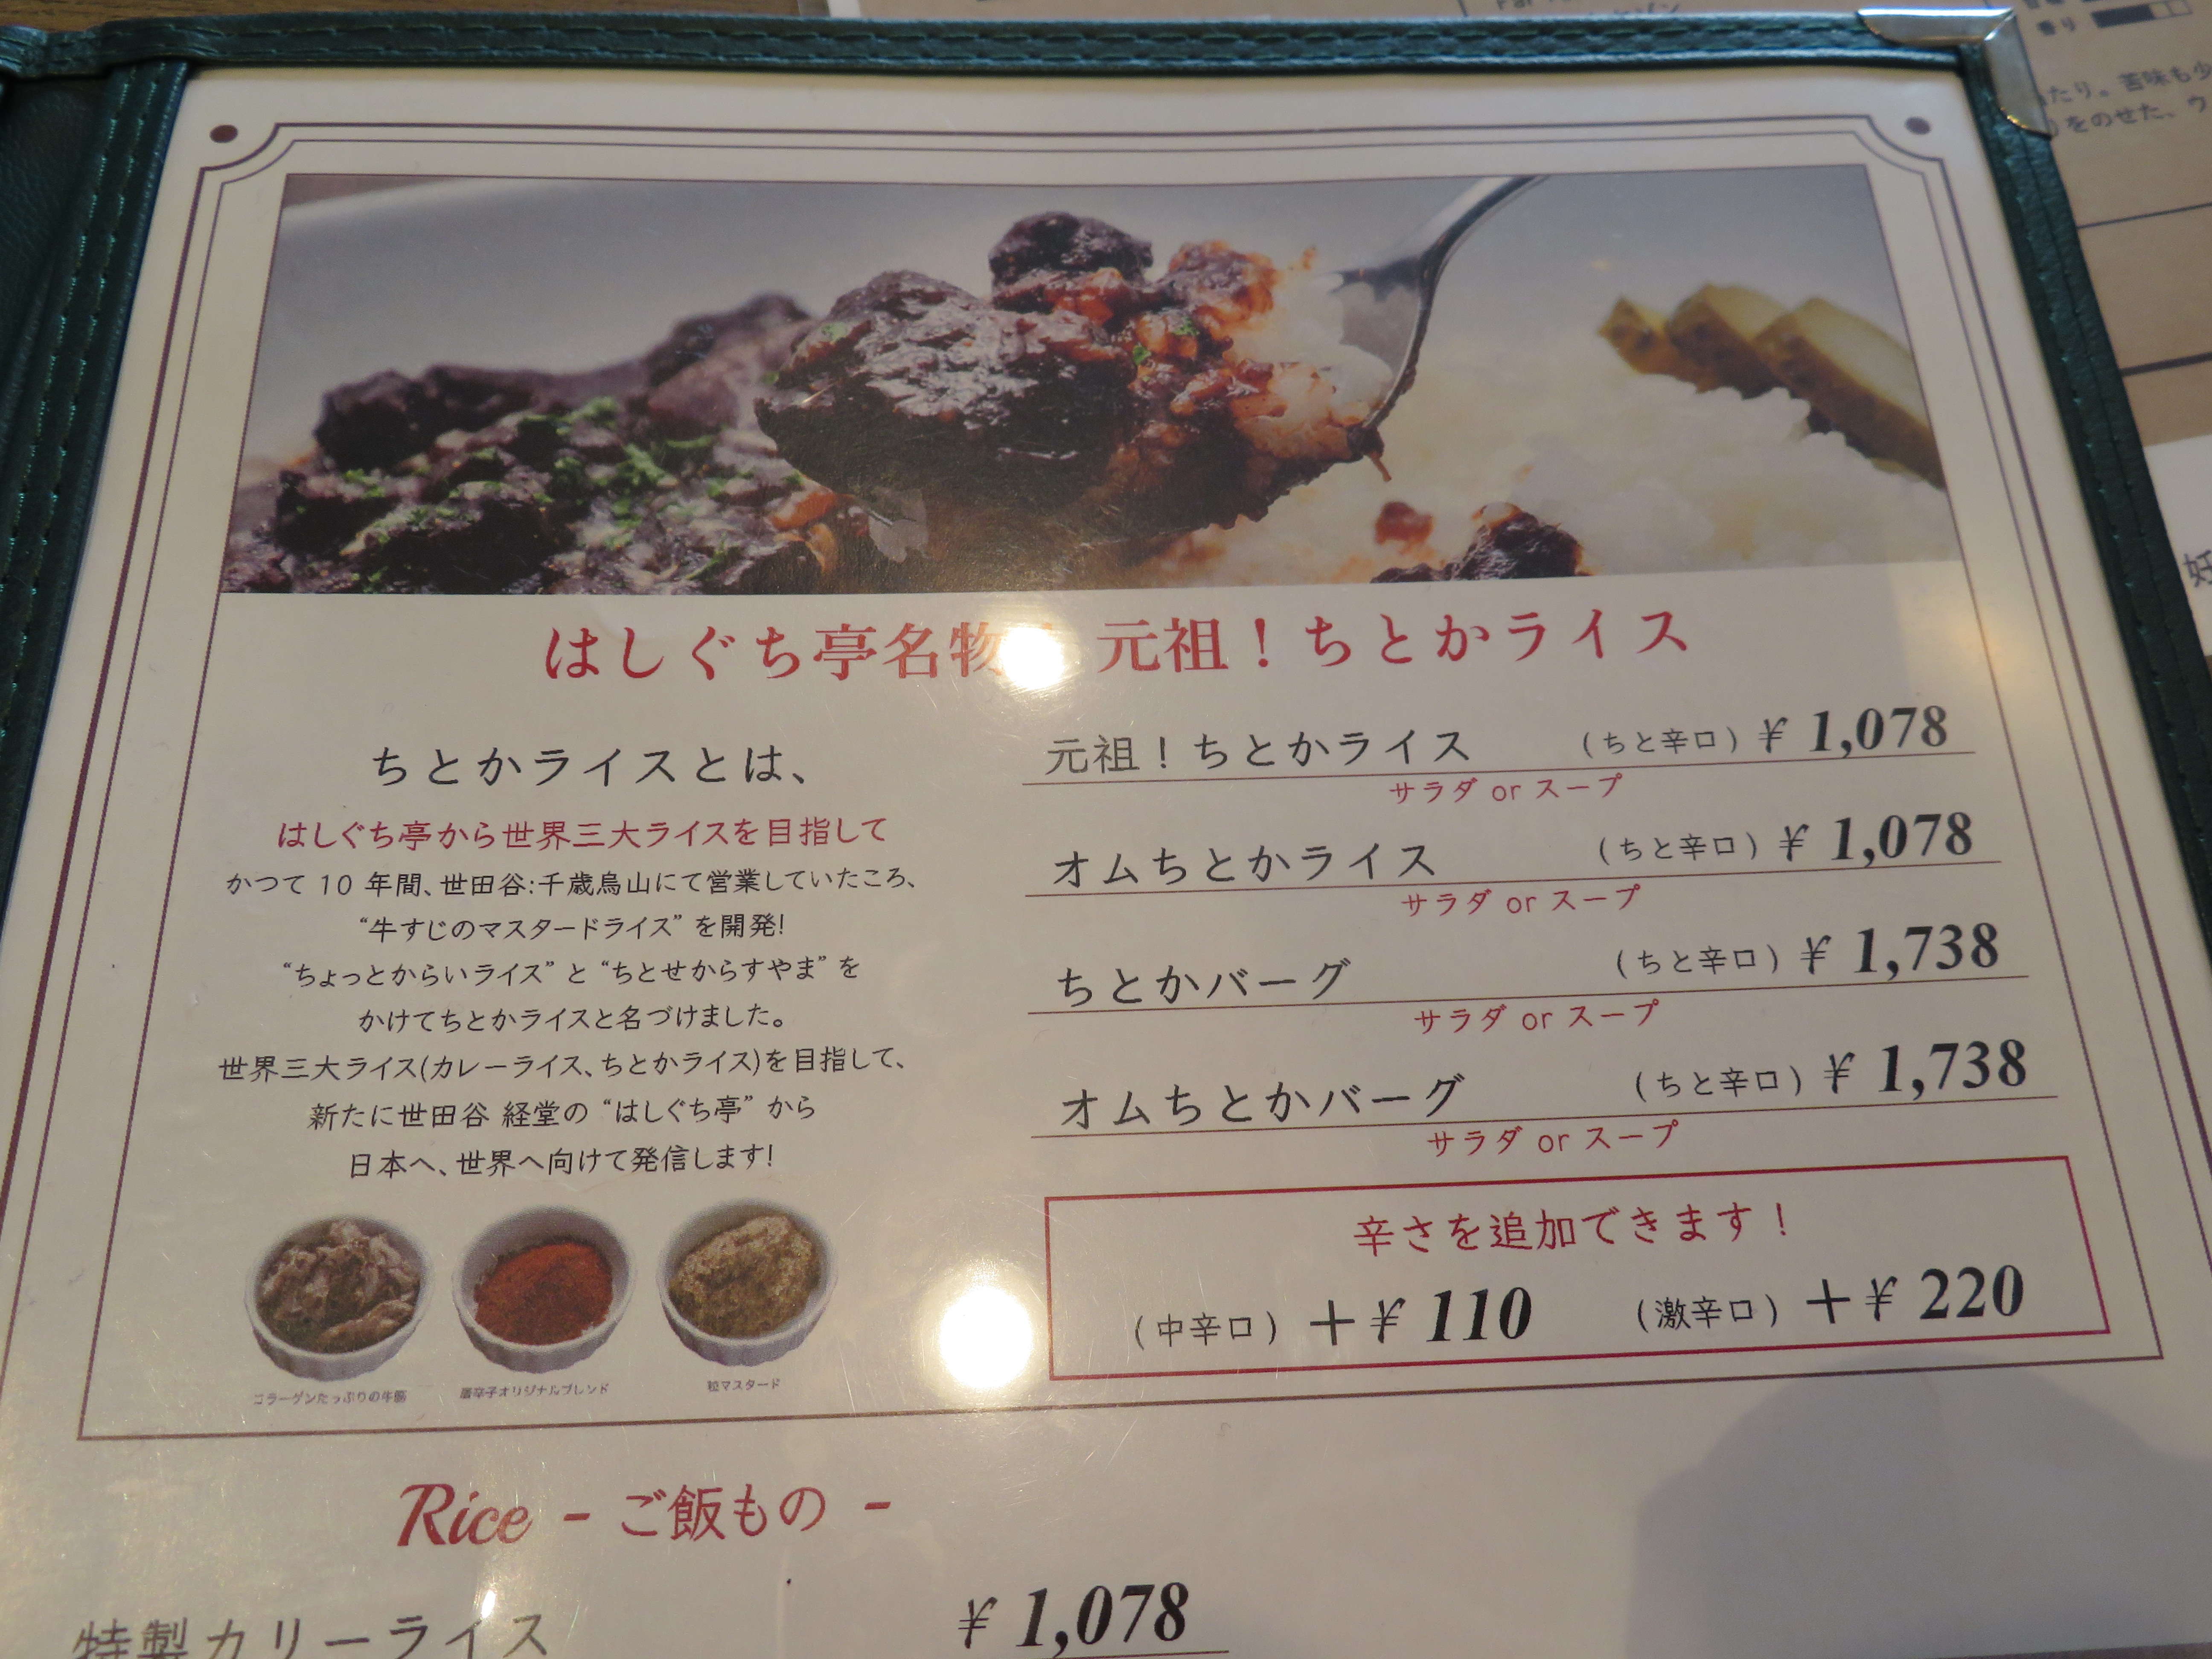 はしぐち亭名物 元祖！ちとかライス
ちとかライスとは、
はしぐち亭から世界三大ライスを目指して
かつて 10 年間、世田谷:千歳烏山にて営業していたころ、
“牛すじのマスタードライス” を開発!
“ちょっとからいライス” と “ちとせからすやま” を
かけてちとかライスと名づけました。
世界三大ライス(カレーライス、ちとかライス)を目指して、
新たに世田谷 経堂の “はしぐち亭” から
日本へ、世界へ向けて発信します!
コラーゲンたっぷりの牛筋
唐辛子オリジナルブレンド
粒マスタード
元祖！ちとかライス (ちと辛口) ¥ 1,078
サラダ or スープ
オムちとかライス (ちと辛口) ¥ 1,078
サラダ or スープ
ちとかバーグ (ちと辛口) ¥ 1,738
サラダ or スープ
オムちとかバーグ (ちと辛口) ¥ 1,738
サラダ or スープ
辛さを追加できます！
(中辛口) ＋¥ 110 (激辛口) ＋¥ 220
Rice - ご飯もの -
特製カリーライス ¥ 1,078
香り
たり。苦味も少
をのせた、ウ